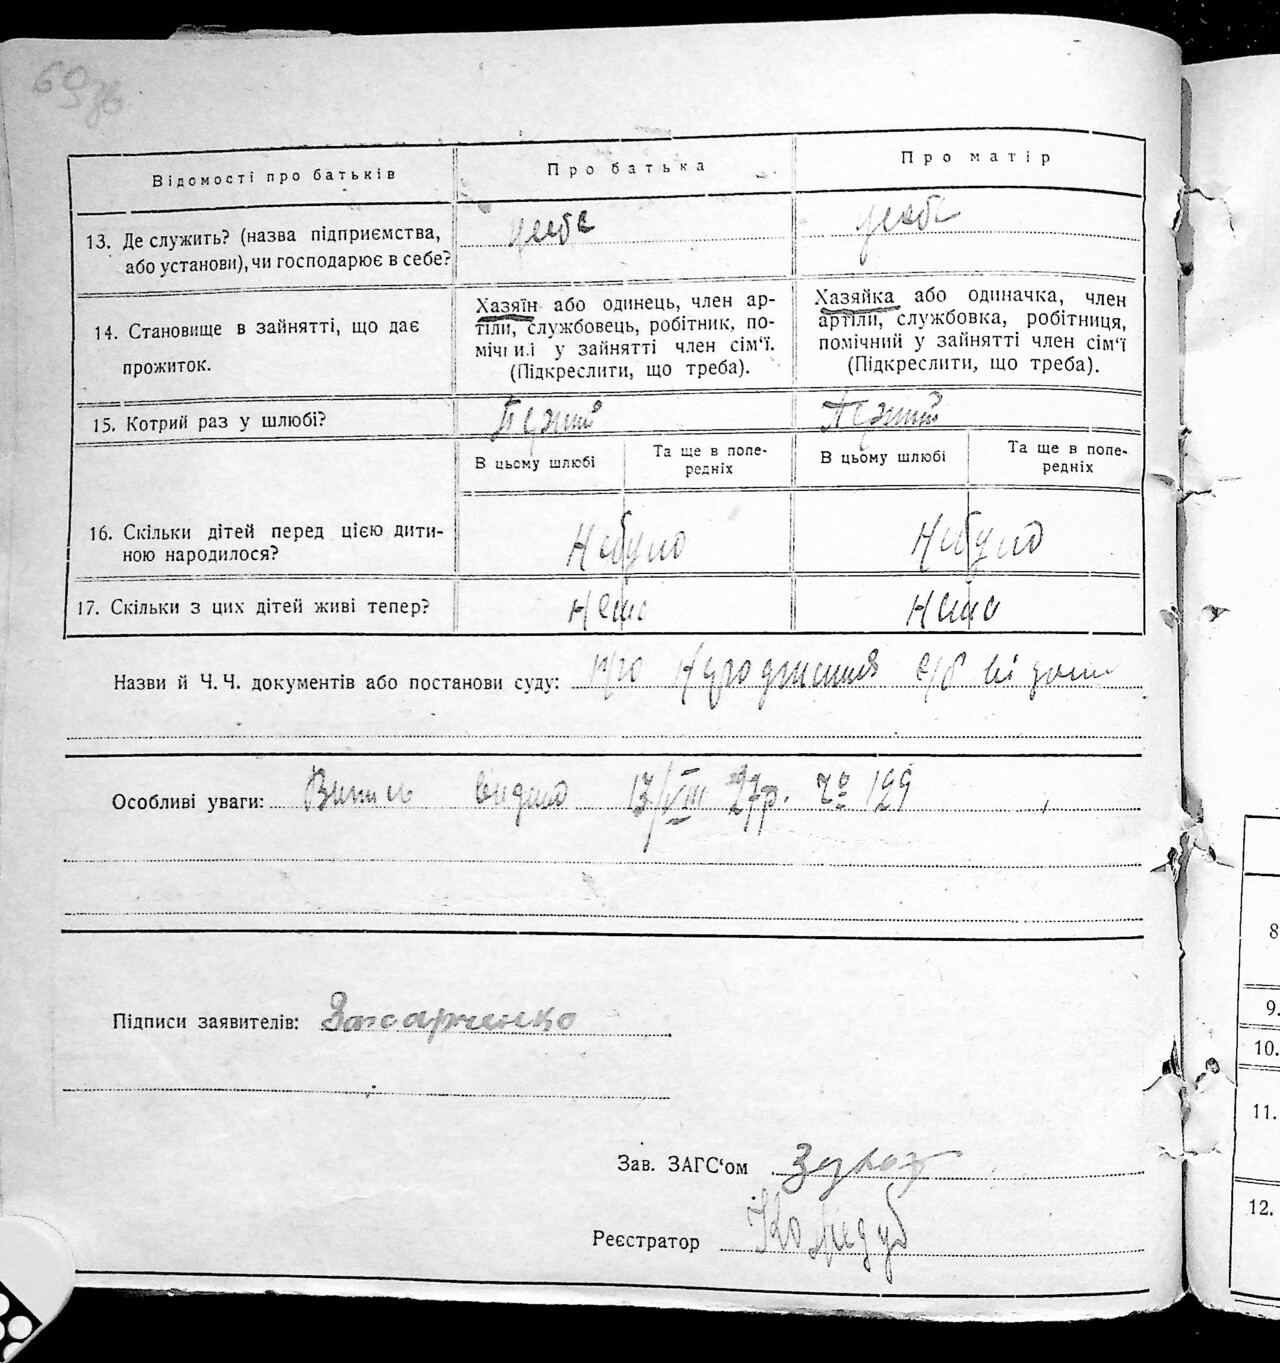 69зв
Відомості про батьків
Про батька
Про матір
13. Де служить? (назва підприємства,
або установи), чи господарює в себе?
у себе
у себе
14. Становище в зайнятті, що дає
прожиток.
Хазяїн або одинець, член ар-
тіли, службовець, робітник, по-
мічний у зайнятті член сім'ї.
(Підкреслити, що треба).
Хазяйка або одиначка, член
артіли, службовка, робітниця,
помічний у зайнятті член сім'ї
(Підкреслити, що треба).
15. Котрий раз у шлюбі?
Перший
Перший
В цьому шлюбі
Та ще в попе-
редніх
В цьому шлюбі
Та ще в попе-
редніх
16. Скільки дітей перед цією дити-
ною народилося?
Небуло
Небуло
17. Скільки з цих дітей живі тепер?
Нема
Нема
Назви й Ч. Ч. документів або постанови суду: про народження с/р
Особливі уваги: Випись видано 13/VIII 27р. № 199
Підписи заявителів: Захарченко
Зав. ЗАГС'ом
Реєстратор
8
9.
10.
11.
12.